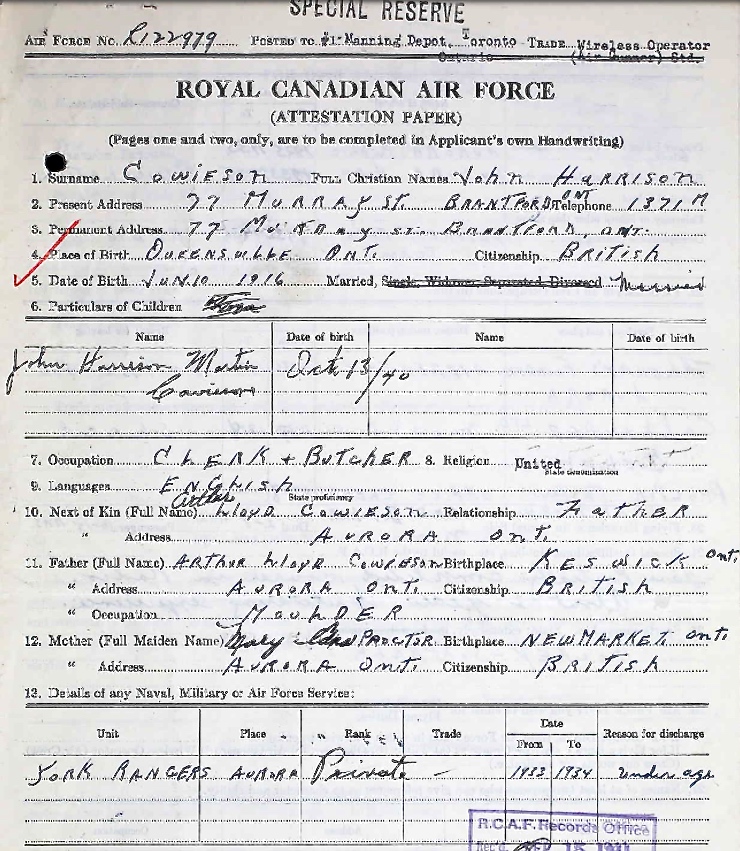 SPECIAL RESERVE
AIR FORCE NO. R122979 POSTED TO #1 Manning Depot, Toronto TRADE Wireless Operator
Ontario (Air Gunner) Std.
ROYAL CANADIAN AIR FORCE
(ATTESTATION PAPER)
(Pages one and two, only, are to be completed in Applicant's own Handwriting)
1. Surname COWIESON FULL Christian Names John HARRISON
2. Present Address 77 MURRAY ST. BRANTFORD ONT Telephone 1371 M
3. Permanent Address 77 MURRAY ST. BRANTFORD, ONT.
4. Place of Birth QUEENSVILLE ONT. Citizenship BRITISH
5. Date of Birth JUN 10 1916 Married, Single, Widower, Separated, Divorced Married
6. Particulars of Children
Name Date of birth Name Date of birth
John Harrison Martin Oct 13/40
Cowieson
7. Occupation CLERK + BUTCHER 8. Religion United
State denomination
9. Languages ENGLISH
State proficiency
10. Next of Kin (Full Name) Arthur Lloyd COWIESON Relationship FATHER
" Address AURORA ONT.
11. Father (Full Name) ARTHUR Lloyd COWIESON Birthplace KESWICK ONT.
" Address AURORA ONT. Citizenship BRITISH
" Occupation MOULDER
12. Mother (Full Maiden Name) Mary PROCTOR Birthplace NEWMARKET ONT.
" Address AURORA ONT. Citizenship BRITISH
13. Details of any Naval, Military or Air Force Service:
Unit Place Rank Trade Date Reason for discharge
From To
YORK RANGERS AURORA Private — 1933 1934 Under age
R.C.A.F. Records Office